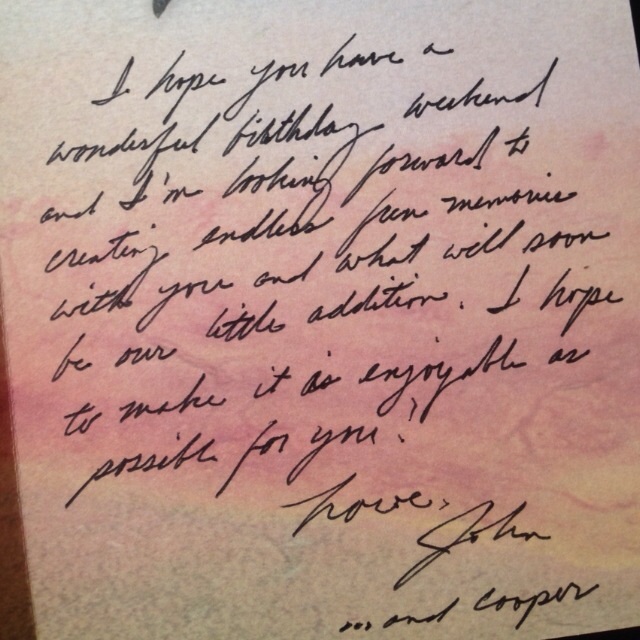 I hope you have a
wonderful birthday weekend
and I'm looking forward to
creating endless fun memories
with you and what will soon
be our little addition. I hope
to make it as enjoyable as
possible for you!
Love,
John
... and Cooper